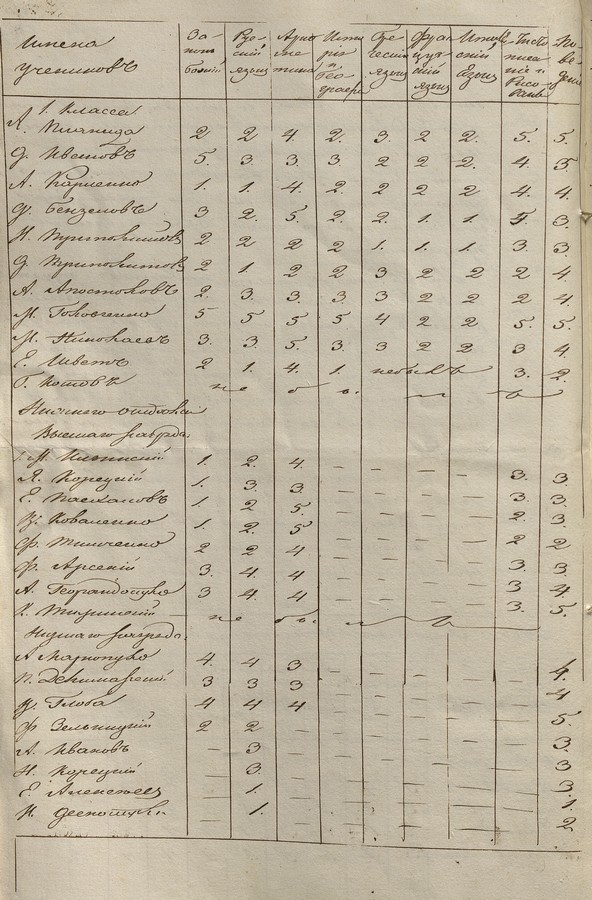 Имена учениковъ | Законъ божій | Русскій языкъ | Арифметика | Исторія и географія | Греческій языкъ | Французскій языкъ | Италіанскій языкъ | Чистописаніе и Рисованіе | Поведеніе
1. Класса
А. 2 2 4 2. 3. 2 2. 5. 5.
Д. Ивановъ 5. 3. 3. 3 2 2 2. 4. 5
А. Карпенко 1. 1. 4. 2. 2 2 2 4. 4.
3 2. 5. 2. 2. 1. 1. 5. 3.
2 2 2 2 1. 1. 1. 3. 3.
2 1. 2 2 3 2 2 2 4.
А. Апостоловъ 2. 3. 3. 3. 3 2 2 2 4.
М. Головченко 5 5 5 5 4 2 2 5. 5.
М. Николаевъ 3. 3. 5. 3. 3 2 2 3 4.
Е. Шветъ 2 1. 4. 1. небылъ 3. 2.
Г. Котовъ не былъ
Нижняго отделенія
Высшаго разряда.
Ильинскій 1. 2. 4. – – – – 3. 3.
Я. Корецкій 1. 3. 3. – – – – 3. 3.
Е. Пасхаловъ 1. 2 5. – – – – 2. 3.
Коваленко 1. 2. 5 – – – – 2 2
Ф. Тимченко 2 2 4 – – – – 3. 3.
Ф. Арсеній 3. 4. 4 – – – – 3 4
А. 3 4. 4. – – – – 3. 5.
не былъ
Низшаго разряда.
4. 4 3 – – – – – 4.
3 3 3 – – – – – 4
Глоба 4 4 4 – – – – – 5.
Ф. Зельницкій 2 2 – – – – – – 3.
А. Ивановъ – 3 – – – – – – 3
Н. Корецкій – 3. – – – – – – 3.
Е. Алексеев – 1. – – – – – – 1.
– 1. – – – – – – 2.